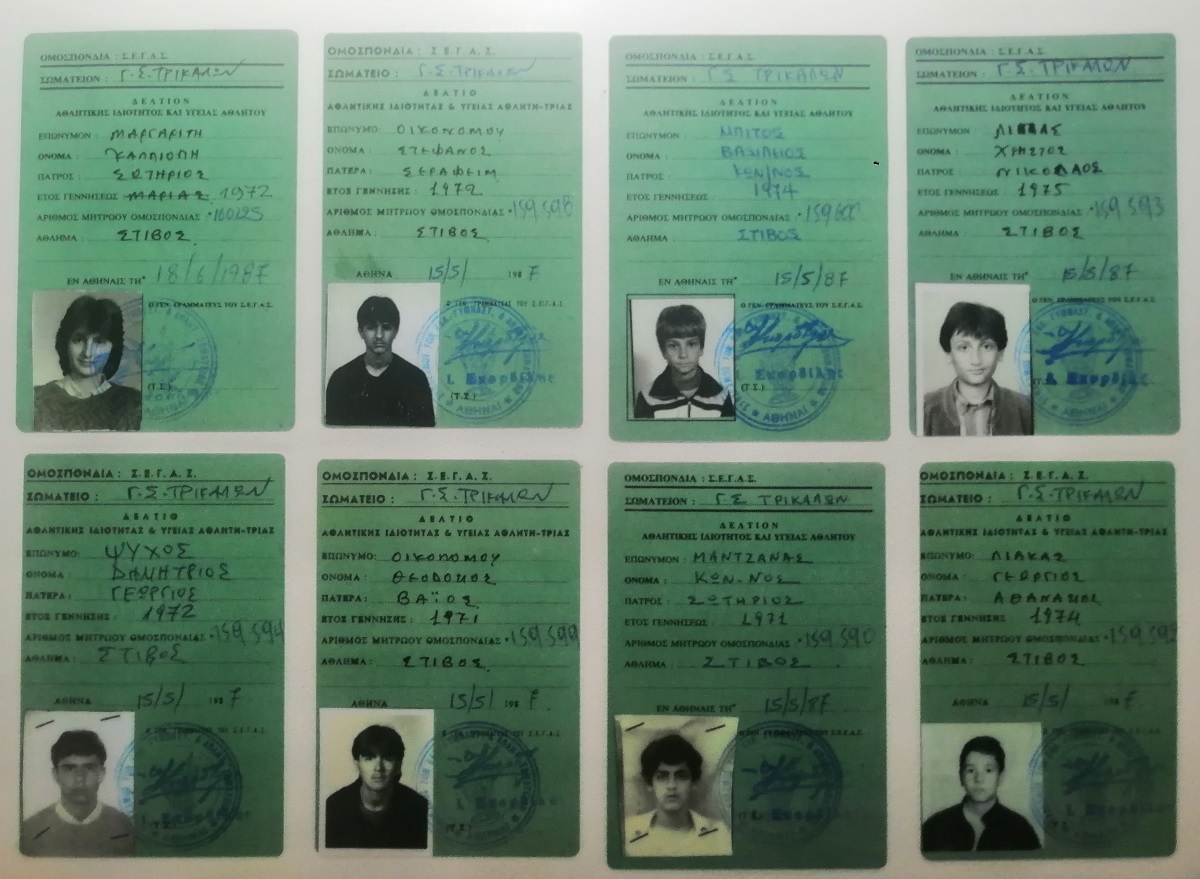 ΟΜΟΣΠΟΝΔΙΑ : Σ.Ε.Γ.Α.Σ.
ΣΩΜΑΤΕΙΟΝ : Γ.Σ.ΤΡΙΚΑΛΩΝ
ΔΕΛΤΙΟΝ
ΑΘΛΗΤΙΚΗΣ ΙΔΙΟΤΗΤΟΣ ΚΑΙ ΥΓΕΙΑΣ ΑΘΛΗΤΟΥ
ΕΠΩΝΥΜΟΝ : ΜΑΡΓΑΡΙΤΗ
ΟΝΟΜΑ : ΚΑΛΛΙΟΠΗ
ΠΑΤΡΟΣ : ΣΩΤΗΡΙΟΣ
ΕΤΟΣ ΓΕΝΝΗΣΕΩΣ : ΜΑΡΙΑΣ 1972
ΑΡΙΘΜΟΣ ΜΗΤΡΩΟΥ ΟΜΟΣΠΟΝΔΙΑΣ 160125
ΑΘΛΗΜΑ : ΣΤΙΒΟΣ
ΕΝ ΑΘΗΝΑΙΣ ΤΗ 18/6/1987
Ο ΓΕΝ. ΓΡΑΜΜΑΤΕΥΣ ΤΟΥ Σ.Ε.Γ.Α.Σ.
(Τ.Σ.)
ΟΜΟΣΠΟΝΔΙΑ : Σ.Ε.Γ.Α.Σ.
ΣΩΜΑΤΕΙΟ : Γ.Σ.ΤΡΙΚΑΛΩΝ
ΔΕΛΤΙΟ
ΑΘΛΗΤΙΚΗΣ ΙΔΙΟΤΗΤΑΣ & ΥΓΕΙΑΣ ΑΘΛΗΤΗ-ΤΡΙΑΣ
ΕΠΩΝΥΜΟ: ΟΙΚΟΝΟΜΟΥ
ΟΝΟΜΑ : ΣΤΕΦΑΝΟΣ
ΠΑΤΕΡΑ : ΣΕΡΑΦΕΙΜ
ΕΤΟΣ ΓΕΝΝΗΣΗΣ : 1972
ΑΡΙΘΜΟΣ ΜΗΤΡΩΟΥ ΟΜΟΣΠΟΝΔΙΑΣ 159598
ΑΘΛΗΜΑ : ΣΤΙΒΟΣ
ΑΘΗΝΑ 15/5/ 1987
(Τ.Σ.)
ΟΜΟΣΠΟΝΔΙΑ : Σ.Ε.Γ.Α.Σ.
ΣΩΜΑΤΕΙΟΝ : Γ Σ ΤΡΙΚΑΛΩΝ
ΔΕΛΤΙΟΝ
ΑΘΛΗΤΙΚΗΣ ΙΔΙΟΤΗΤΟΣ ΚΑΙ ΥΓΕΙΑΣ ΑΘΛΗΤΟΥ
ΕΠΩΝΥΜΟΝ : ΜΠΙΤΟΣ
ΟΝΟΜΑ : ΒΑΣΙΛΕΙΟΣ
ΠΑΤΡΟΣ : ΚΩΝ/ΝΟΣ
ΕΤΟΣ ΓΕΝΝΗΣΕΩΣ : 1974
ΑΡΙΘΜΟΣ ΜΗΤΡΩΟΥ ΟΜΟΣΠΟΝΔΙΑΣ
ΑΘΛΗΜΑ : ΣΤΙΒΟΣ
ΕΝ ΑΘΗΝΑΙΣ ΤΗ 15/5/87
Ο ΓΕΝ. ΓΡΑΜΜΑΤΕΥΣ ΤΟΥ Σ.Ε.Γ.Α.Σ.
(Τ.Σ.)
ΑΘΗΝΑΙ
ΟΜΟΣΠΟΝΔΙΑ : Σ.Ε.Γ.Α.Σ.
ΣΩΜΑΤΕΙΟΝ : Γ Σ ΤΡΙΚΑΛΩΝ
ΔΕΛΤΙΟΝ
ΑΘΛΗΤΙΚΗΣ ΙΔΙΟΤΗΤΟΣ ΚΑΙ ΥΓΕΙΑΣ ΑΘΛΗΤΟΥ
ΕΠΩΝΥΜΟΝ
ΟΝΟΜΑ : ΧΡΗΣΤΟΣ
ΠΑΤΡΟΣ : ΝΙΚΟΛΑΟΣ
ΕΤΟΣ ΓΕΝΝΗΣΕΩΣ : 1975
ΑΡΙΘΜΟΣ ΜΗΤΡΩΟΥ ΟΜΟΣΠΟΝΔΙΑΣ 159593
ΑΘΛΗΜΑ : ΣΤΙΒΟΣ
ΕΝ ΑΘΗΝΑΙΣ ΤΗ 15/5/87
Ο ΓΕΝ. ΓΡΑΜΜΑΤΕΥΣ ΤΟΥ Σ.Ε.Γ.Α.Σ.
ΑΘΗΝΑΙ
ΟΜΟΣΠΟΝΔΙΑ : Σ.Ε.Γ.Α.Σ.
ΣΩΜΑΤΕΙΟ : Γ.Σ.ΤΡΙΚΑΛΩΝ
ΔΕΛΤΙΟ
ΑΘΛΗΤΙΚΗΣ ΙΔΙΟΤΗΤΑΣ & ΥΓΕΙΑΣ ΑΘΛΗΤΗ-ΤΡΙΑΣ
ΕΠΩΝΥΜΟ: ΨΥΧΟΣ
ΟΝΟΜΑ : ΔΗΜΗΤΡΙΟΣ
ΠΑΤΕΡΑ : ΓΕΩΡΓΙΟΣ
ΕΤΟΣ ΓΕΝΝΗΣΗΣ : 1972
ΑΡΙΘΜΟΣ ΜΗΤΡΩΟΥ ΟΜΟΣΠΟΝΔΙΑΣ 159594
ΑΘΛΗΜΑ : ΣΤΙΒΟΣ
ΑΘΗΝΑ 15/5/ 1987
ΟΜΟΣΠΟΝΔΙΑ : Σ.Ε.Γ.Α.Σ.
ΣΩΜΑΤΕΙΟ : Γ.Σ.ΤΡΙΚΑΛΩΝ
ΔΕΛΤΙΟ
ΑΘΛΗΤΙΚΗΣ ΙΔΙΟΤΗΤΑΣ & ΥΓΕΙΑΣ ΑΘΛΗΤΗ-ΤΡΙΑΣ
ΕΠΩΝΥΜΟ: ΟΙΚΟΝΟΜΟΥ
ΟΝΟΜΑ :
ΠΑΤΕΡΑ : ΒΑΪΟΣ
ΕΤΟΣ ΓΕΝΝΗΣΗΣ : 1971
ΑΡΙΘΜΟΣ ΜΗΤΡΩΟΥ ΟΜΟΣΠΟΝΔΙΑΣ 159599
ΑΘΛΗΜΑ : ΣΤΙΒΟΣ
ΑΘΗΝΑ 15/5/ 1987
(Τ.Σ.)
ΟΜΟΣΠΟΝΔΙΑ : Σ.Ε.Γ.Α.Σ.
ΣΩΜΑΤΕΙΟΝ : Γ Σ ΤΡΙΚΑΛΩΝ
ΔΕΛΤΙΟΝ
ΑΘΛΗΤΙΚΗΣ ΙΔΙΟΤΗΤΟΣ ΚΑΙ ΥΓΕΙΑΣ ΑΘΛΗΤΟΥ
ΕΠΩΝΥΜΟΝ : ΜΑΝΤΖΑΝΑΣ
ΟΝΟΜΑ : ΚΩΝ-ΝΟΣ
ΠΑΤΡΟΣ : ΣΩΤΗΡΙΟΣ
ΕΤΟΣ ΓΕΝΝΗΣΕΩΣ : 1971
ΑΡΙΘΜΟΣ ΜΗΤΡΩΟΥ ΟΜΟΣΠΟΝΔΙΑΣ 159590
ΑΘΛΗΜΑ : ΣΤΙΒΟΣ
ΕΝ ΑΘΗΝΑΙΣ ΤΗ 15/5/87
(Τ.Σ.)
ΟΜΟΣΠΟΝΔΙΑ : Σ.Ε.Γ.Α.Σ.
ΣΩΜΑΤΕΙΟ : Γ.Σ.ΤΡΙΚΑΛΩΝ
ΔΕΛΤΙΟ
ΑΘΛΗΤΙΚΗΣ ΙΔΙΟΤΗΤΑΣ & ΥΓΕΙΑΣ ΑΘΛΗΤΗ-ΤΡΙΑΣ
ΕΠΩΝΥΜΟ: ΛΙΑΚΑΣ
ΟΝΟΜΑ : ΓΕΩΡΓΙΟΣ
ΠΑΤΕΡΑ :
ΕΤΟΣ ΓΕΝΝΗΣΗΣ : 1974
ΑΡΙΘΜΟΣ ΜΗΤΡΩΟΥ ΟΜΟΣΠΟΝΔΙΑΣ
ΑΘΛΗΜΑ : ΣΤΙΒΟΣ
ΑΘΗΝΑ 15/5/ 1987